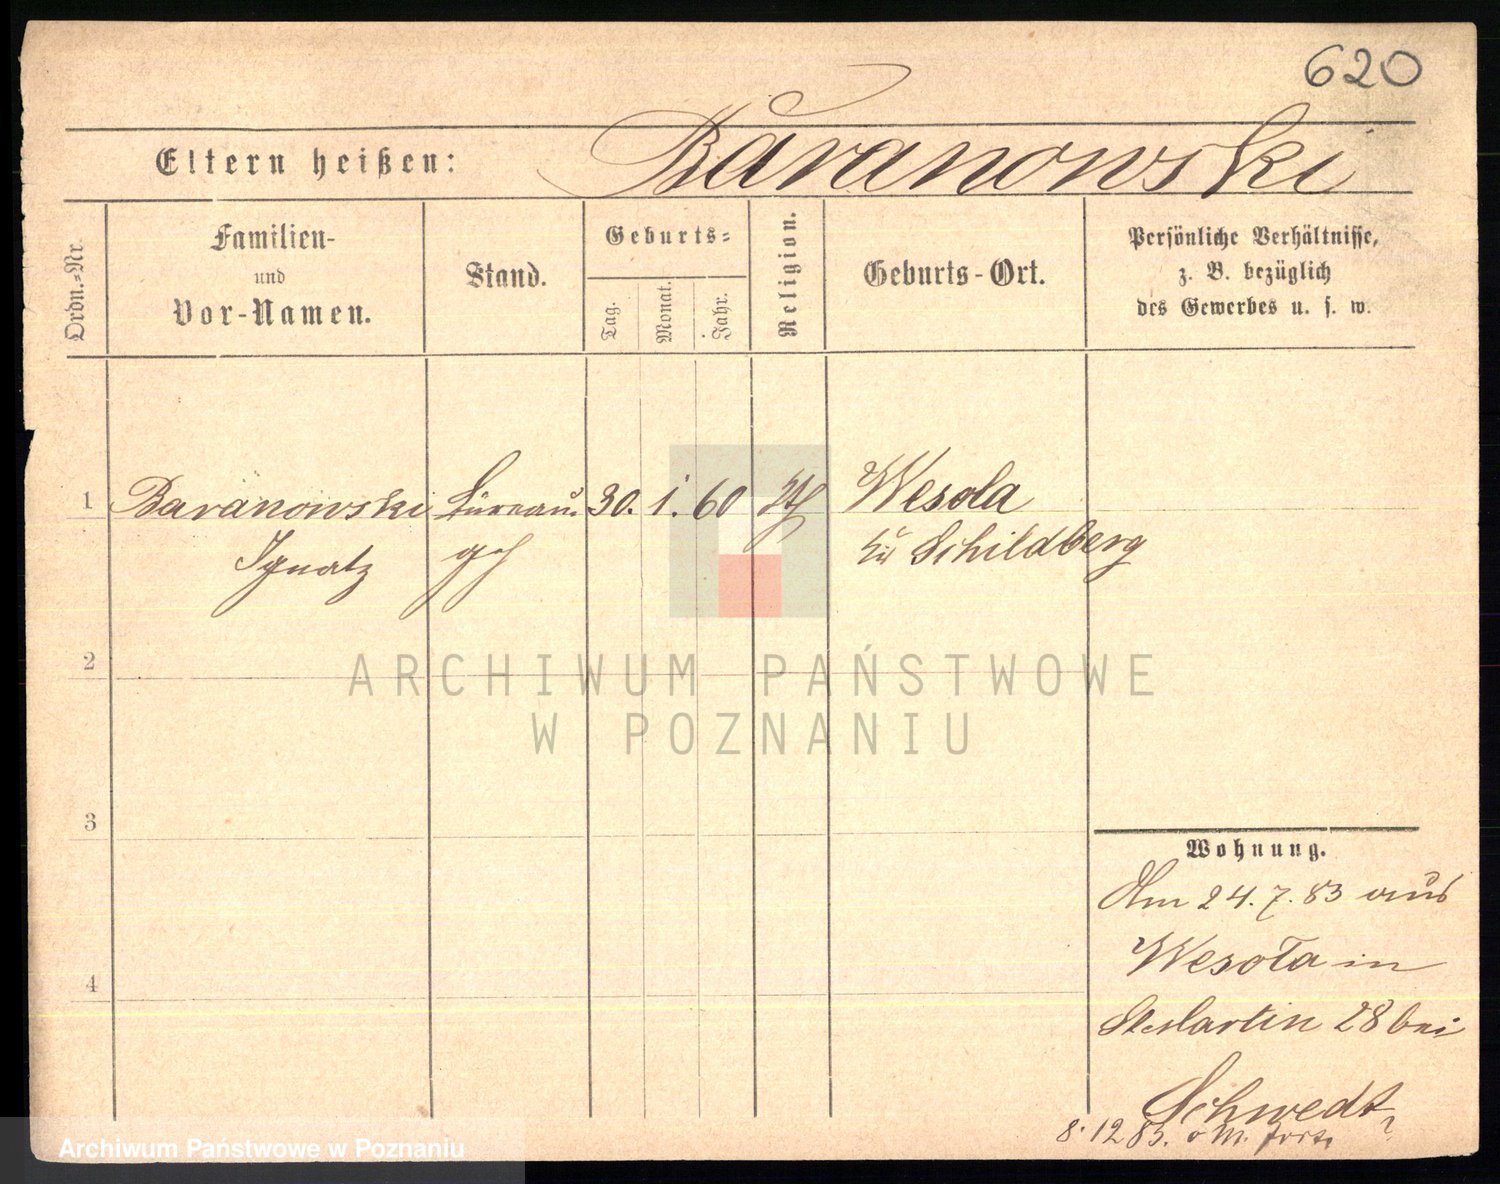 620
Eltern heißen: Baranowski
Ordn.-Nr.
Familien-
und
Vor-Namen.
Stand.
Geburts-
Tag.
Monat.
Jahr.
Religion.
Geburts-Ort.
Persönliche Verhältnisse,
z. B. bezüglich
des Gewerbes u. s. w.
1 Baranowski Büreau 30. 1. 60 Wesola
Ignatz geh Schildberg
2
ARCHIWUM PAŃSTWOWE
W POZNANIU
3
Wohnung.
Am 24. 7. 83 aus
4
Wesoła in
St Martin 28 bei
Schwedt
8. 12 83. fort
Archiwum Państwowe w Poznaniu